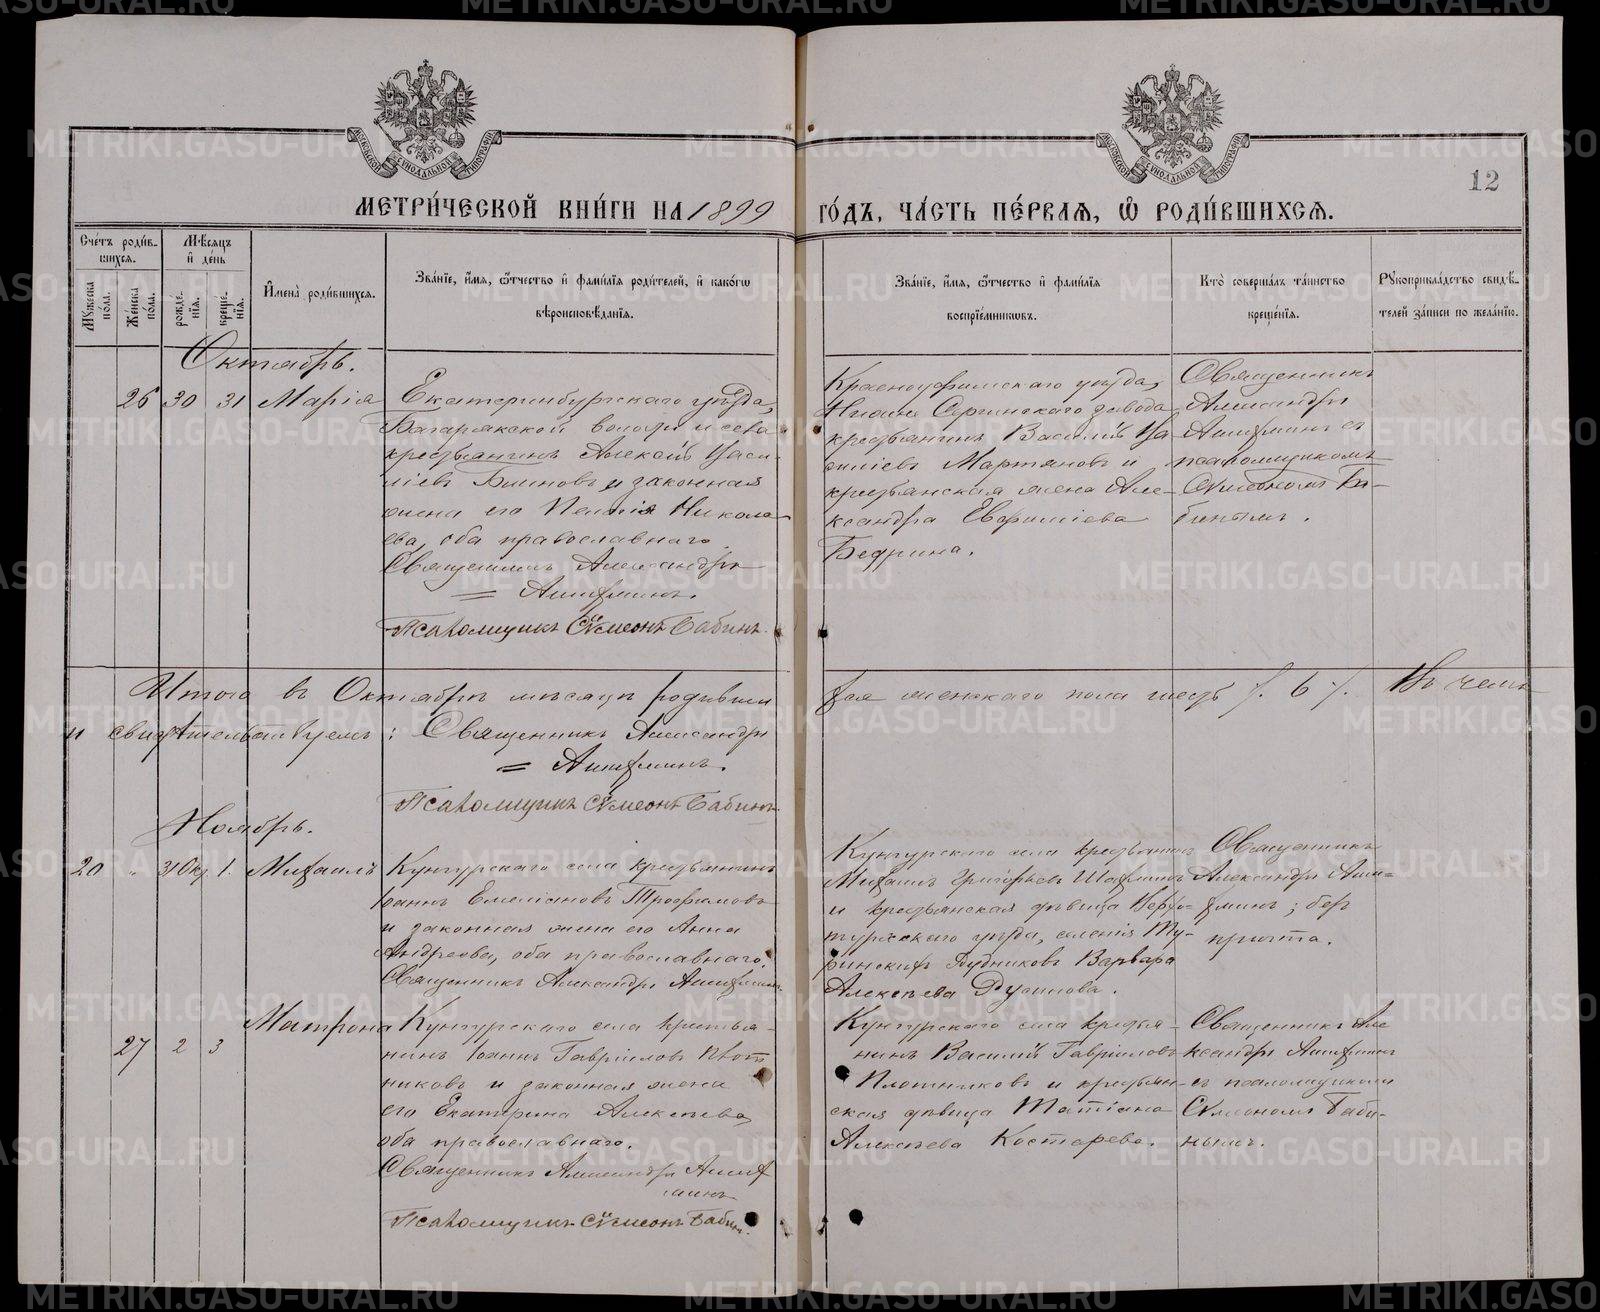 МОСКОВСКОЙ СѴНОДАЛЬНОЙ ТИПОГРАФІИ
МОСКОВСКОЙ СѴНОДАЛЬНОЙ ТИПОГРАФІИ
12
МЕТРИ́ЧЕСКОЙ КНИ́ГИ НА 1899 ГО́ДЪ, ЧА́СТЬ ПЕ́РВАЯ, Ѡ РОДИ́ВШИХСЯ.
Сче́тъ роди́в-
шихся.
Мꙋжеска по́ла.
Же́нска по́ла.
Мѣ́сяцъ и҆ де́нь
рожде́нїя.
креще́нїя.
И҆мена̀ роди́вшихся.
Зва́нїе, и҆́мя, ѻ҆́тчество и҆ фами́лїя роди́телей, и҆ како́гѡ
вѣроисповѣ́данїя.
Зва́нїе, и҆́мя, ѻ҆́тчество и҆ фами́лїя
воспрїе́мникѡвъ.
Кто̀ соверша́лъ та́инство
креще́нїя.
Рꙋкоприкла́дство свидѣ́-
телей за́писи по жела́нїю.
Октябрь.
26 30 31 Марія
Екатеринбургскаго уѣзда,
Багарякской волости и села
крестьянинъ Алексій Васи-
ліевъ Блиновъ и законная
жена его Пелагія Никола-
ева, оба православнаго.
Священникъ Александръ
= Ашихминъ.
Псаломщикъ Сѷмеонъ Бабинъ.
Красноуфимскаго уѣзда,
Нижне Сергинскаго завода
крестьянинъ Василій Ва
силіевъ Мартяновъ и
крестьянская жена Але-
ксандра Евфиміева
Бедрина.
Священникъ
Александръ
Ашихминъ съ
псаломщикомъ
Сѷмеономъ Ба-
бинымъ.
Итого въ Октябрѣ мѣсяцѣ родивши
хся женскаго пола шесть /. 6 /. Въ чемъ
и свидѣтельствуемъ: Священникъ Александръ
= Ашихминъ.
Псаломщикъ Сѷмеонъ Бабинъ.
Ноябрь.
20 " 31 Ок. 1. Михаилъ
Кунгурскаго села крестьянинъ
Іоаннъ Емеліановъ Трофимовъ
и законная жена его Анна
Андреева, оба православнаго.
Священникъ Александръ Ашихминъ.
Кунгурскаго села крестьянинъ
Михаилъ Григорьевъ Шахминъ
и крестьянская дѣвица Верхо-
турскаго уѣзда, селенія Ту-
ринскихъ Рудниковъ Варвара
Алексѣева Русинова.
Священникъ
Александръ Аши-
хминъ; безъ
причта.
27 2 3 Матрона
Кунгурскаго села крестья-
нинъ Іоаннъ Гавріиловъ Плот
никовъ и законная жена
его Екатерина Алексѣева,
оба православнаго.
Священникъ Александръ Аших
минъ
Псаломщикъ Сѷмеонъ Бабинъ.
Кунгурскаго села крестья-
нинъ Василій Гавріиловъ
Плотниковъ и крестьян-
ская дѣвица Татіана
Алексѣева Костарева.
Священникъ Але
ксандръ Ашихминъ
съ псаломщикомъ
Сѷмеономъ Баби-
нымъ.
METRIKI.GASO-URAL.RU